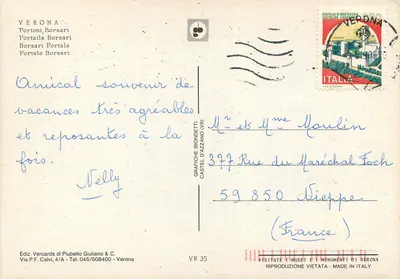 VERONA
Portoni Borsari
Portails Borsari
Borsari Portals
Portale Borsari
Amical souvenir de
vacances très agréables
et reposantes à la
fois.
Nelly
Ediz. Vercards di Piubello Giuliano & C.
Via P.F. Calvi, 4/A - Tel. 045/508400 - Verona
GRAFICHE BIONDETTI
CASTEL D'AZZANO (VR)
VR 35
VERONA
ITALIA
Mr et Mme Moulin
377 Rue du Maréchal Foch
59 850 Nieppe
(France)
VISITATE I MUSEI E MONUMENTI DI VERONA
RIPRODUZIONE VIETATA - MADE IN ITALY